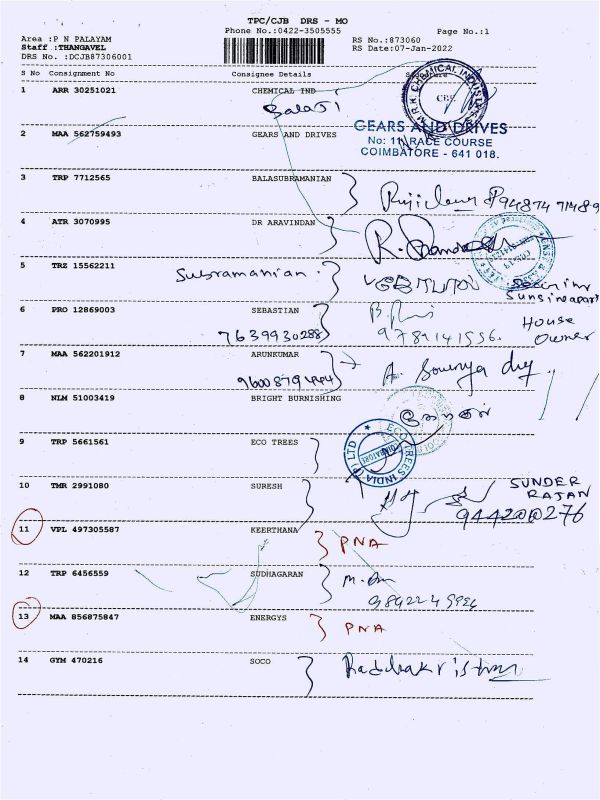 TPC/CJB DRS - MO
Phone No.:0422-3505555 Page No.:1
Area :P N PALAYAM RS No.:873060
Staff :THANGAVEL RS Date:07-Jan-2022
DRS No. :DCJB87306001
S No Consignment No Consignee Details Signature
1 ARR 30251021 CHEMICAL IND
Balaji
M.R.K. CHEMICAL INDUSTRIES CBE
2 MAA 562759493 GEARS AND DRIVES
GEARS AND DRIVES
No: 11, RACE COURSE
COIMBATORE - 641 018.
3 TRP 7712565 BALASUBRAMANIAN
4 ATR 3070995 DR ARAVINDAN
5 TRZ 15562211
Subramanian
6 PRO 12869003 SEBASTIAN
7639930288
9789141556.
House
Owner
7 MAA 562201912 ARUNKUMAR
A. Sowmya
8 NLM 51003419 BRIGHT BURNISHING
9 TRP 5661561 ECO TREES
ECO TREES INDIA (P) LTD COIMBATORE
10 TMR 2991080 SURESH
SUNDER
RAJAN
11 VPL 497305587 KEERTHANA
PNA
12 TRP 6456559 SUDHAGARAN
13 MAA 856875847 ENERGYS
PNA
14 GYM 470216 SOCO
Raddhakrishnan